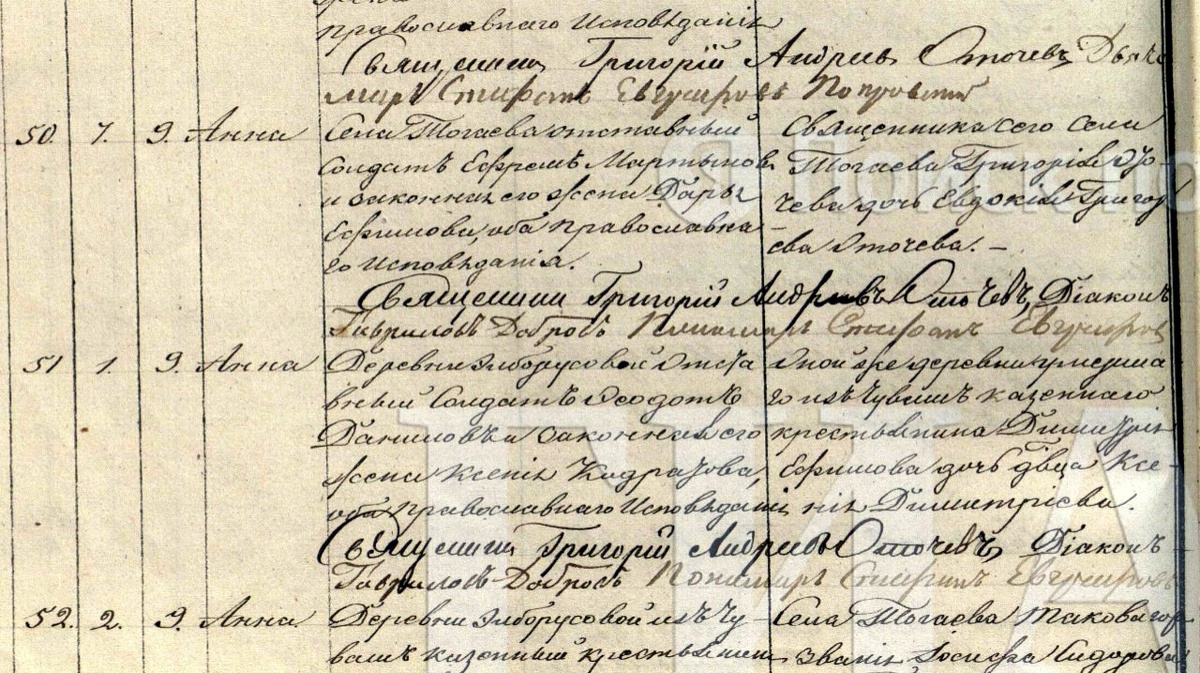 православнаго Исповѣданія
Священникъ Григорій Андреевъ Оточевъ,
50. 7. 9. Анна Села Тогаева отставный
Солдатъ Ефремъ Мартыновъ
и законная его жена Дарья
Ефимова, оба православна-
го Исповѣданія.
Священника сего села
Тогаева Григорія Ото-
чева дочь Евдокія Григор
ева Оточева. –
Священникъ Григорій Андреевъ Оточевъ, Діаконъ
Гавриловъ Добровъ Пономарь Стефанъ
51 1. 9. Анна Деревни Элборусовой Отста
вный Солдатъ Ѳеодотъ
Даниловъ и законная его
жена Ксенія
оба православнаго Исповѣданія
Оной же деревни умерша
го изъ Чувашъ казеннаго
крестьянина Димитрія
Ефимова дочь дѣвца Ксе-
нія Димитріева.
Священникъ Григорій Андреевъ Оточевъ, Діаконъ
Гавриловъ Добровъ Пономарь Стефанъ
52. 2. 9. Анна Деревни Элборусовой изъ Чу-
вашъ казенный крестьянинъ
Села Тогаева таковагож
званія Іосифа Сидорова